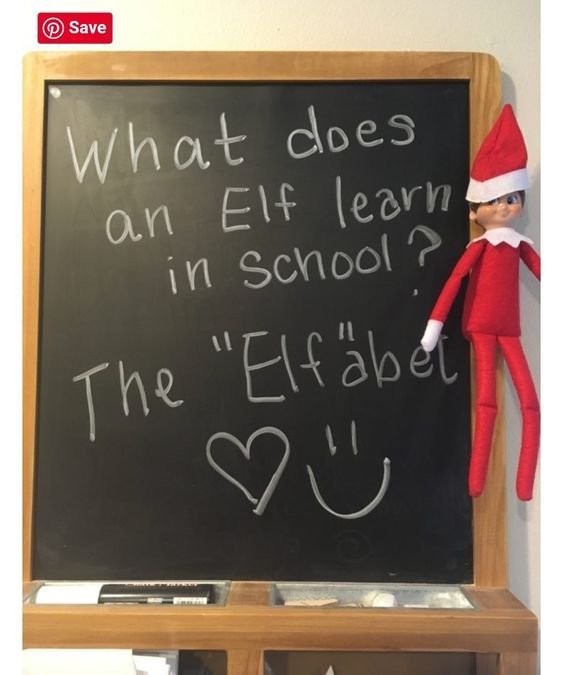 Save
What does
an Elf learn
in School?
The "Elf"abet